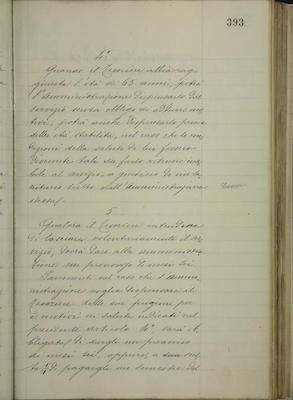 393
4°
Quando il Tesoriere abbia rag-
giunta l'età di 65 anni, potrà
l'amministrazione dispensarlo dal
servizio senza obbligo di addurre mo-
tivi, potrà anche dispensarlo prima
della età stabilita, nel caso che le con-
dizioni della salute di lui fossero
divenute tali da farlo ritenere ina-
bile al servizio, a giudizio di un sa-
nitario scelto dall'amministrazione
stessa.
5
Qualora il Tesoriere intendesse
di lasciare volontariamente il ser-
vizio, dovrà dare alla amministra-
zione un preavviso di mesi sei.
Parimenti nel caso che l'ammi-
nistrazione voglia dispensare il
Tesoriere dalle sue funzioni per
i motivi di salute indicati nel
precedente articolo 4°, sarà ob-
bligata di dargli un preavviso
di mesi sei, oppure, a sua scel-
ta, di pagargli un semestre del